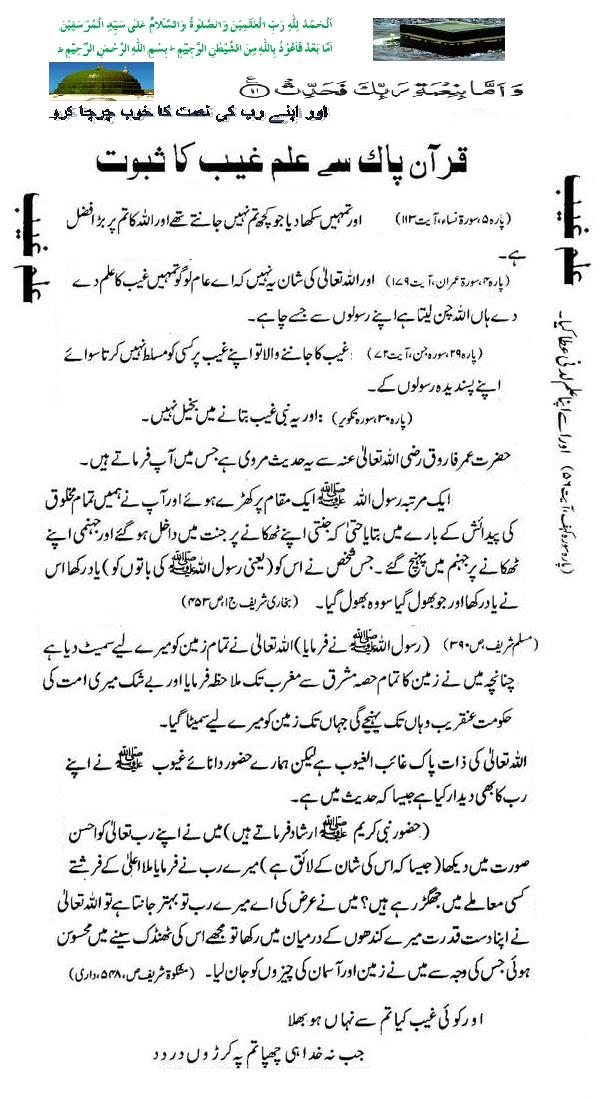 اَلْحَمْدُ لِلّٰهِ رَبِّ الْعٰلَمِيْنَ وَالصَّلٰوةُ وَالسَّلَامُ عَلٰى سَيِّدِ الْمُرْسَلِيْنَ
اَمَّا بَعْدُ فَاَعُوْذُ بِاللّٰهِ مِنَ الشَّيْطٰنِ الرَّجِيْمِ ط بِسْمِ اللّٰهِ الرَّحْمٰنِ الرَّحِيْمِ ط
وَاَمَّا بِنِعْمَةِ رَبِّكَ فَحَدِّثْ ۝۱۱ ع
اور اپنے رب کی نعمت کا خوب چرچا کرو
قرآن پاک سے علم غیب کا ثبوت
علم غیب
علم غیب
(پارہ ۵، سورۃ نساء، آیت ۱۱۳) اور تمہیں سکھا دیا جو کچھ تم نہیں جانتے تھے اور اللہ کا تم پر بڑا فضل
ہے۔
(پارہ ۴، سورۃ عمران، آیت ۱۷۹) اور اللہ تعالیٰ کی شان یہ نہیں کہ اے عام لوگو تمہیں غیب کا علم دے
دے ہاں اللہ چن لیتا ہے اپنے رسولوں سے جسے چاہے۔
(پارہ ۲۹، سورۃ جن، آیت ۷۲) غیب کا جاننے والا تو اپنے غیب پر کسی کو مسلط نہیں کرتا سوائے
اپنے پسندیدہ رسولوں کے۔
(پارہ ۳۰، سورۃ تکویر) : اور یہ نبی غیب بتانے میں بخیل نہیں۔
(پارہ سورہ کہف، آیت ۵۶) اور اسے اپنا علم لدنی عطا کیا۔
حضرت عمر فاروق رضی اللہ تعالیٰ عنہ سے یہ حدیث مروی ہے جس میں آپ فرماتے ہیں۔
ایک مرتبہ رسول اللہ ﷺ ایک مقام پر کھڑے ہوئے اور آپ نے ہمیں تمام مخلوق
کی پیدائش کے بارے میں بتایا حتیٰ کہ جنتی اپنے ٹھکانے پر جنت میں داخل ہو گئے اور جہنمی اپنے
ٹھکانے پر جہنم میں پہنچ گئے۔ جس شخص نے اس کو (یعنی رسول اللہ ﷺ کی باتوں کو) یاد رکھا اس
نے یاد رکھا اور جو بھول گیا سو وہ بھول گیا۔ (بخاری شریف ج۱، ص ۴۵۳)
(مسلم شریف، ص ۳۹۰) (رسول اللہ ﷺ نے فرمایا) اللہ تعالیٰ نے تمام زمین کو میرے لیے سمیٹ دیا ہے
چنانچہ میں نے زمین کا تمام حصہ مشرق سے مغرب تک ملاحظہ فرمایا اور بے شک میری امت کی
حکومت عنقریب وہاں تک پہنچے گی جہاں تک زمین کو میرے لیے سمیٹا گیا۔
اللہ تعالیٰ کی ذات پاک غائب الغیوب ہے لیکن ہمارے حضور دانائے غیوب ﷺ نے اپنے
رب کا بھی دیدار کیا ہے جیسا کہ حدیث میں ہے۔
(حضور نبی کریم ﷺ ارشاد فرماتے ہیں) میں نے اپنے رب تعالیٰ کو احسن
صورت میں دیکھا (جیسا کہ اس کی شان کے لائق ہے) میرے رب نے فرمایا ملا اعلیٰ کے فرشتے
کسی معاملے میں جھگڑ رہے ہیں؟ میں نے عرض کی اے میرے رب تو بہتر جانتا ہے تو اللہ تعالیٰ
نے اپنا دست قدرت میرے کندھوں کے درمیان میں رکھا تو مجھے اس کی ٹھنڈک سینے میں محسوس
ہوئی جس کی وجہ سے میں نے زمین اور آسمان کی چیزوں کو جان لیا۔ (مشکوٰۃ شریف ص، ۵۴۸، داری)
اور کوئی غیب کیا تم سے نہاں ہو بھلا
جب نہ خدا ہی چھپا تم پہ کرڑوں درد د